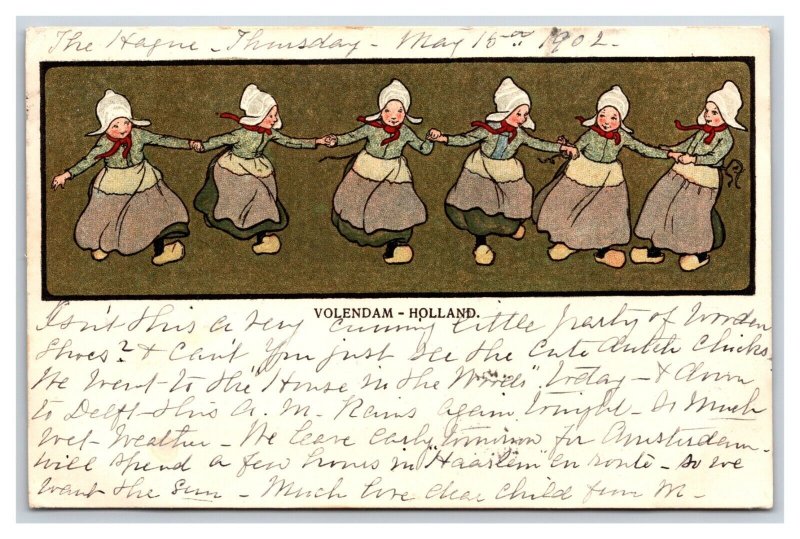 The Hague - Thursday - May 15th 1902 -
VOLENDAM - HOLLAND.
Isn't this a very cunning little party of Wooden
Shoes? & Can't you just see the cute dutch chicks -
We went to the "House in the Woods" today - & down
to Delft - this A. M. - Rains again tonight - so much
wet - weather - We leave early tomorrow for Amsterdam -
will spend a few hours in "Haarlem" en route - so we
want the sun - Much love dear child from M -